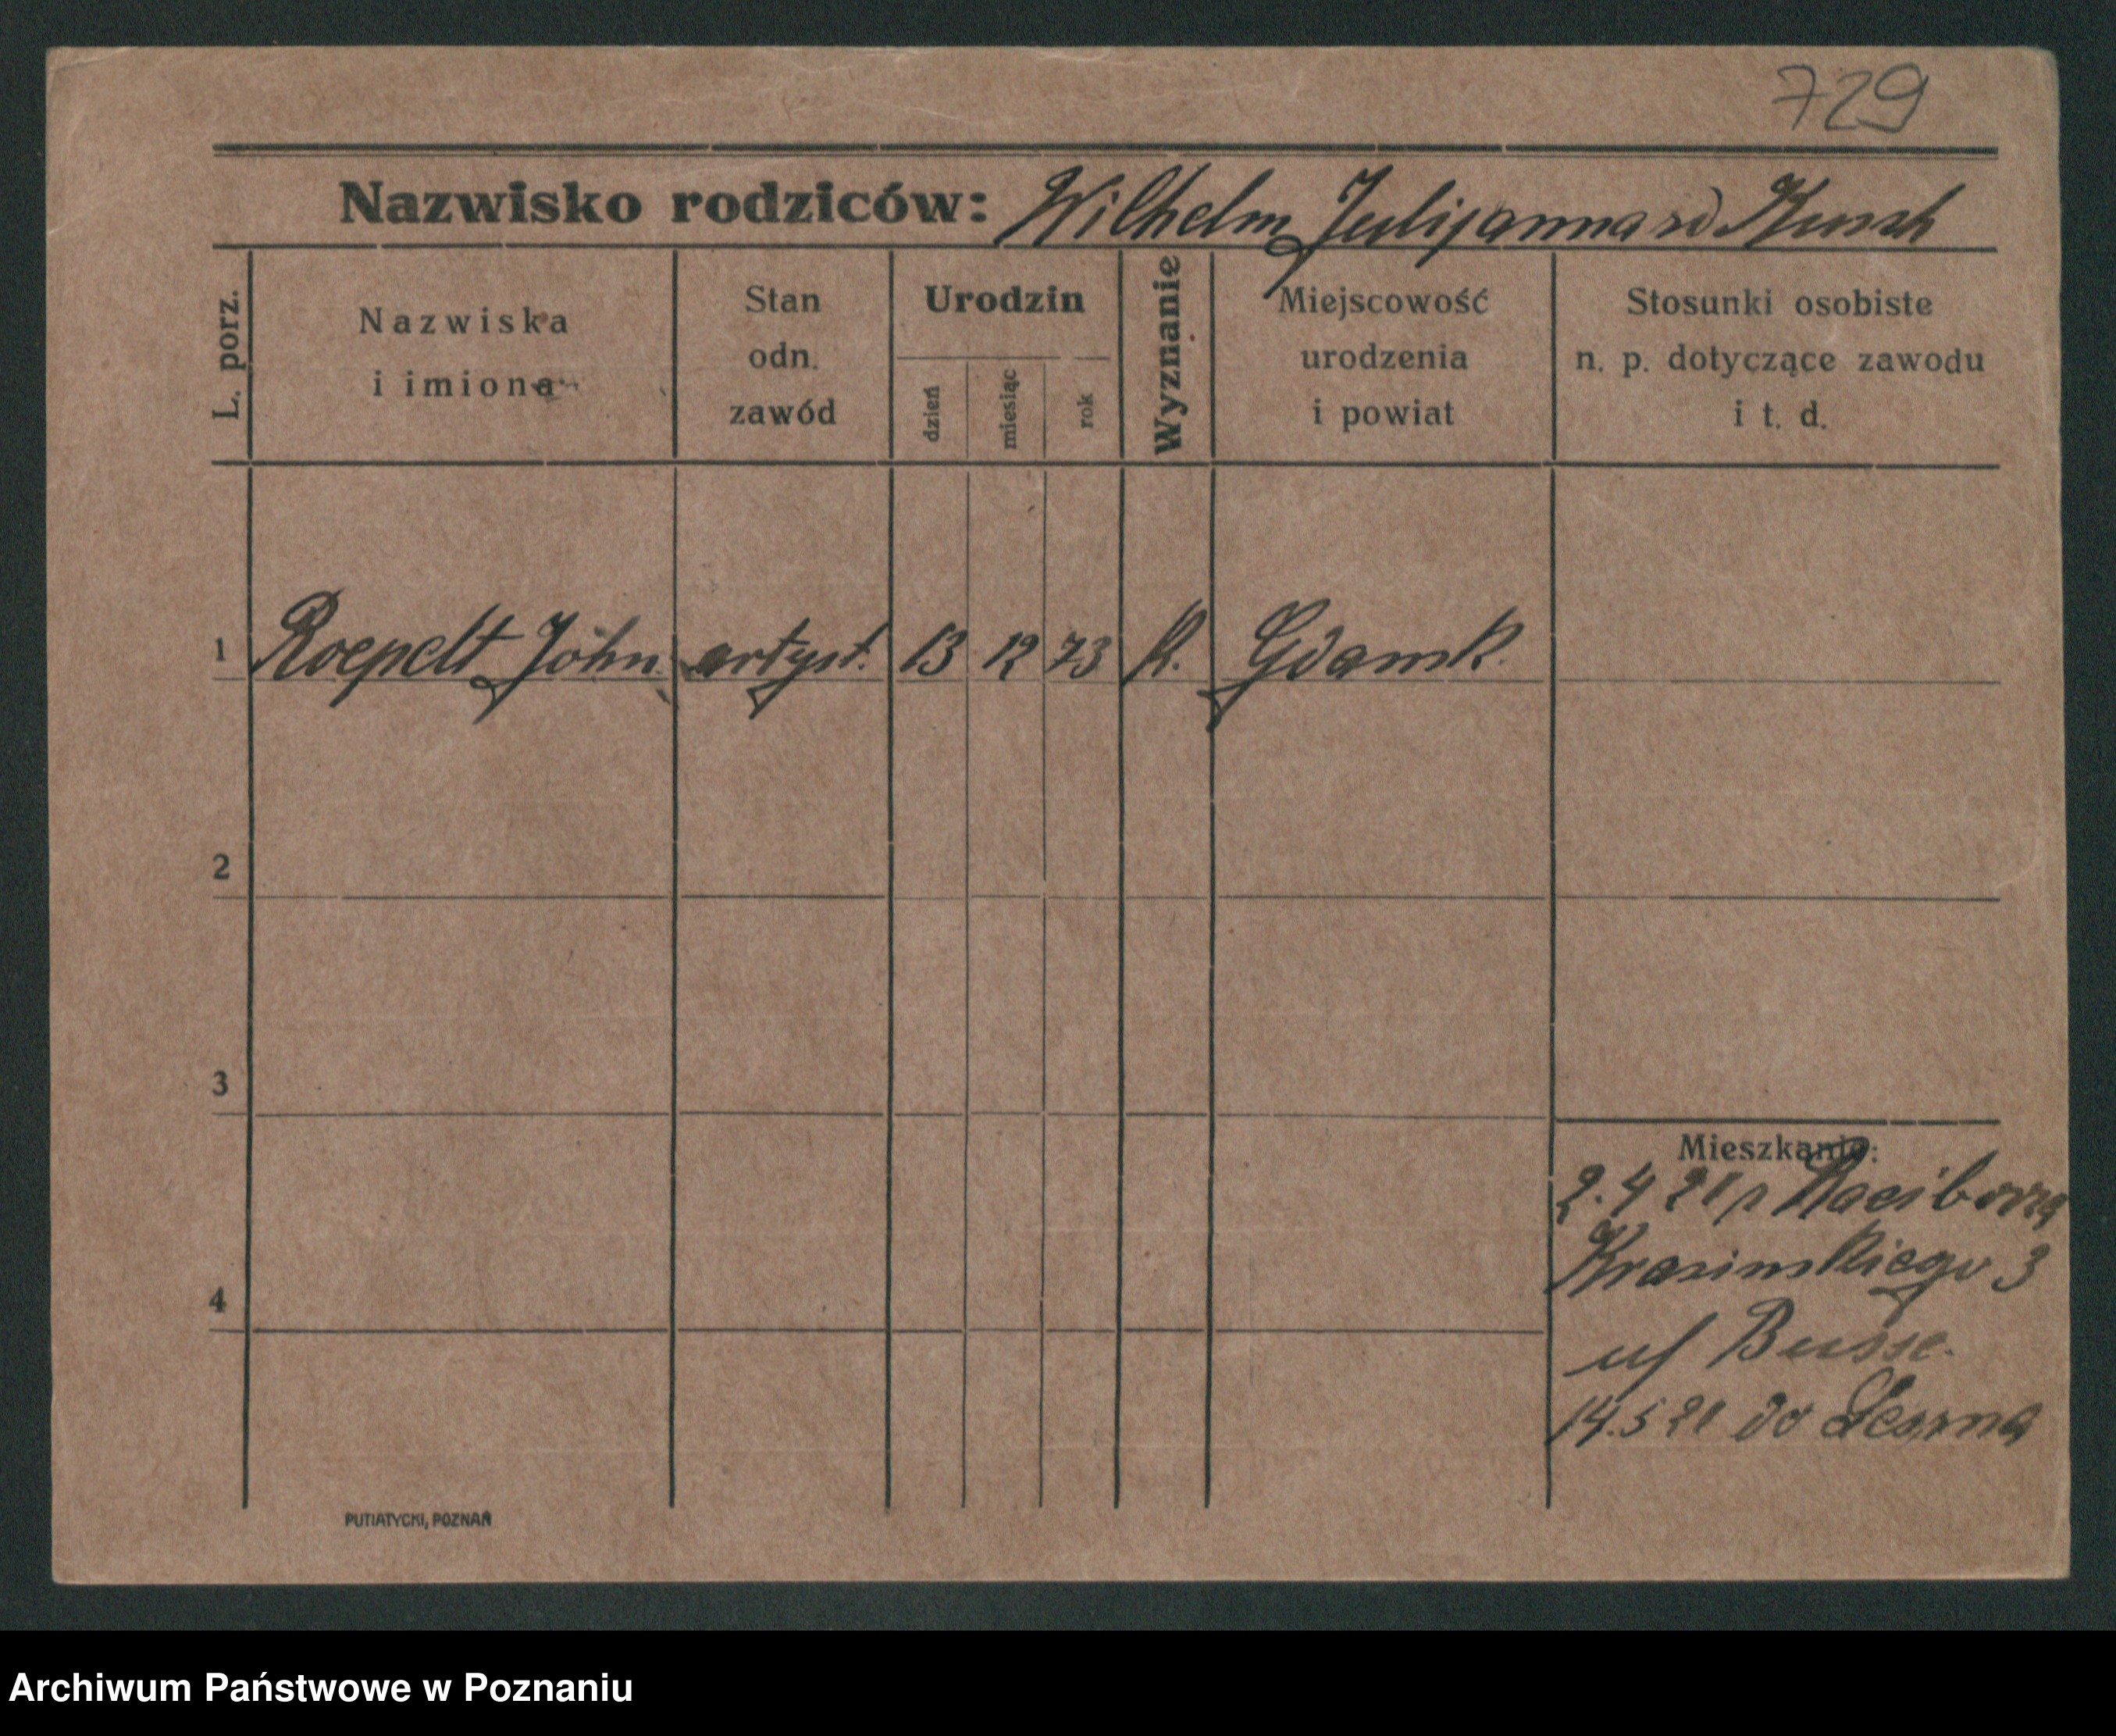 729
Nazwisko rodziców: Wilhelm Julijanna zd Kunsch
L. porz.
Nazwiska i imiona
Stan odn. zawód
Urodzin
dzień
miesiąc
rok
Wyznanie
Miejscowość urodzenia i powiat
Stosunki osobiste n. p. dotyczące zawodu i t. d.
1 Roepelt John artyst. 13 12 73 k. Gdansk
2
3
4
Mieszkanie:
2.4 21 z Raciborza
Krasinskiego 3
u/ Busse.
14.5 21 do Leszna
PUTIATYCKI, POZNAŃ
Archiwum Państwowe w Poznaniu